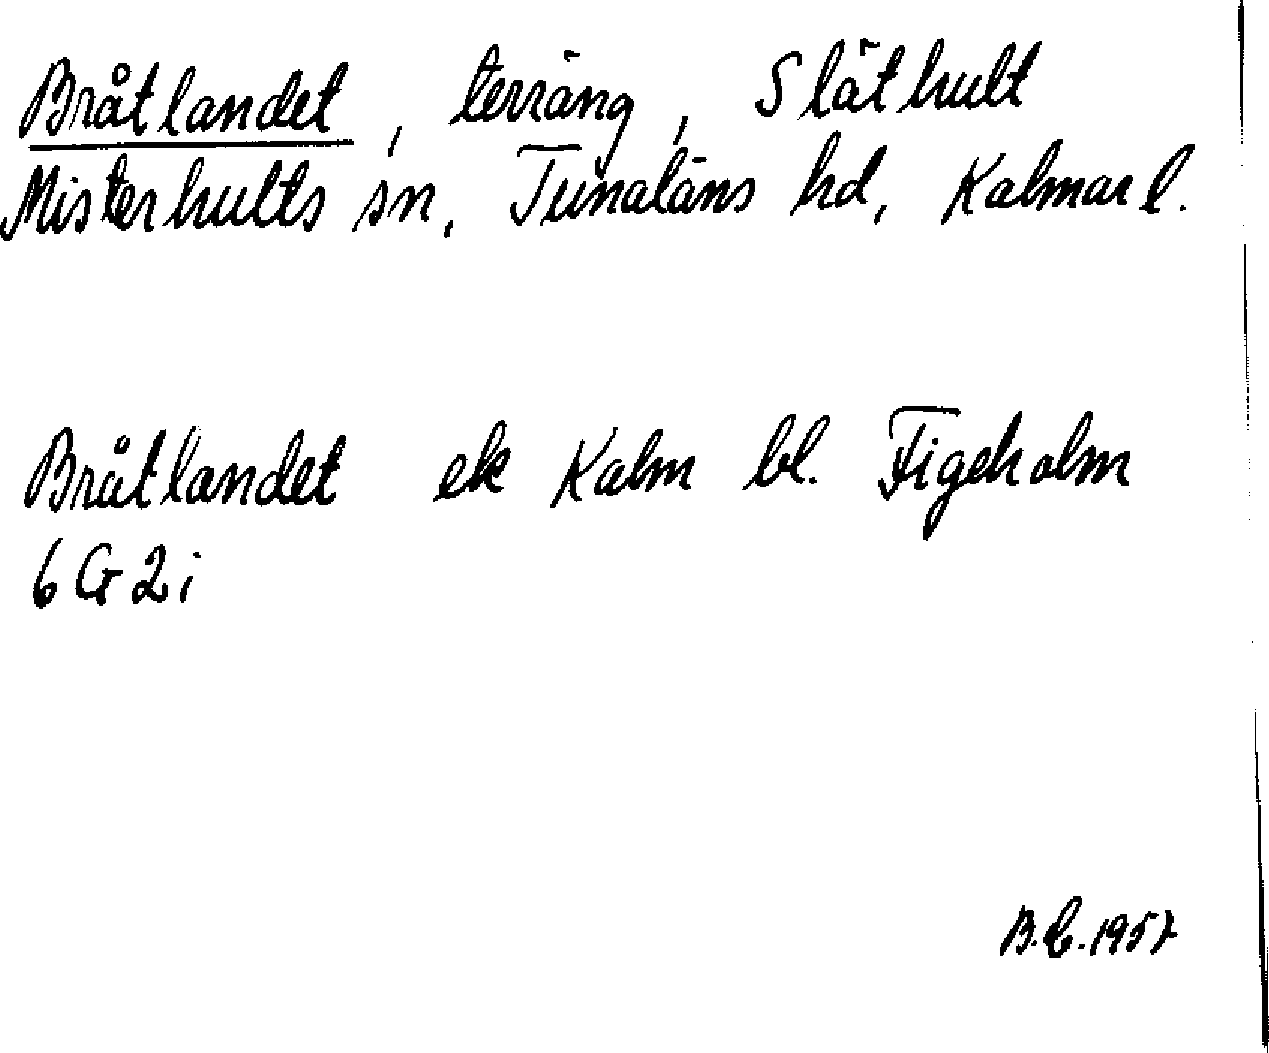 Bråtlandet, terräng, Släthult
Misterhults sn, Tunaläns hd, Kalmar l.
Bråtlandet ek Kalm bl. Figeholm
6 G 2 i
1957